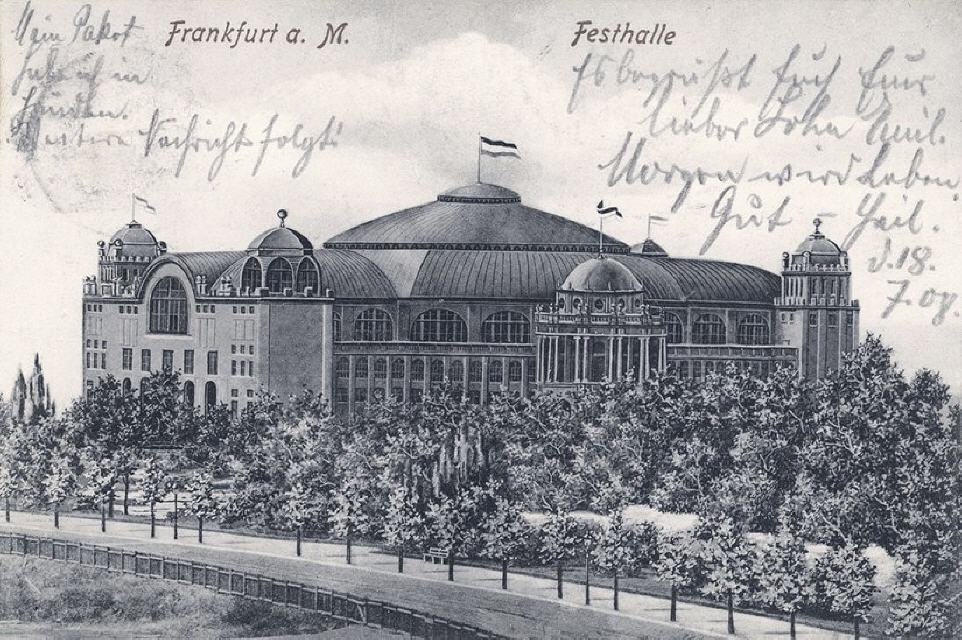 Frankfurt a. M.
Festhalle
Mein Paket
hab ich in
Händen.
Weitere Nachricht folgt!
Es begrüßt Euch Euer
lieber Sohn Emil.
Morgen wird Leben.
Gut Heil.
d. 18.
7. 09.